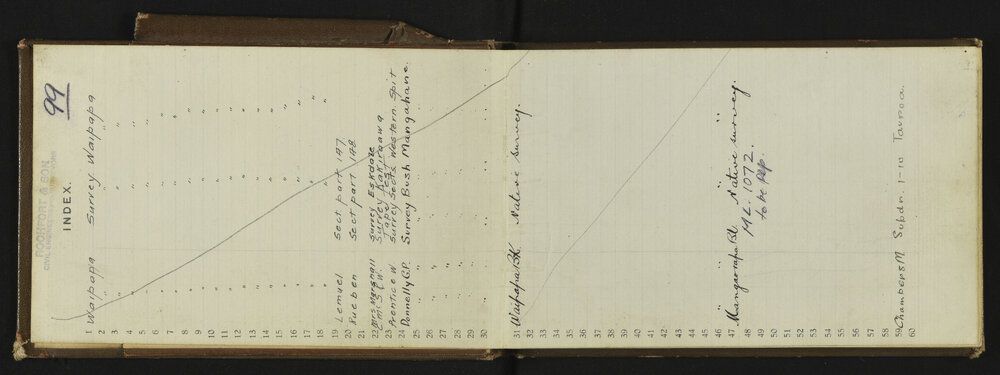 99
ROCHFORT & SON
INDEX.
1 Waipapa Survey Waipapa
2 " " "
3 " " " "
4 " " " "
5 " " " "
6 " " " "
7 " " " "
8 " " " "
9 " " " "
10 " " " "
11 " " " "
12 " " " "
13 " " " "
14 " " " "
15 " " " "
16 " " " "
17 " " " "
18 " " " "
19 Lemuel Sect part 147
20 Rueben Sect part 148
21 Survey Eskdale
22 Survey
23 Prentice W Survey Sects Western Spit
24 Donnelly G.P. Survey Bush Mangahane.
25 " "
26 " "
27 " "
28 " "
29 " "
30 " "
31 Waipapa BK. Native Survey.
32
33
34
35
36
37
38
39
40
41
42
43
44
45
46 " "
47 Bl. Native Survey
48 ML. 1072.
49 to be rep.
50
51
52
53
54
55
56
57
58
59 Chambers M Subdn. 1-10 Tauroa.
60